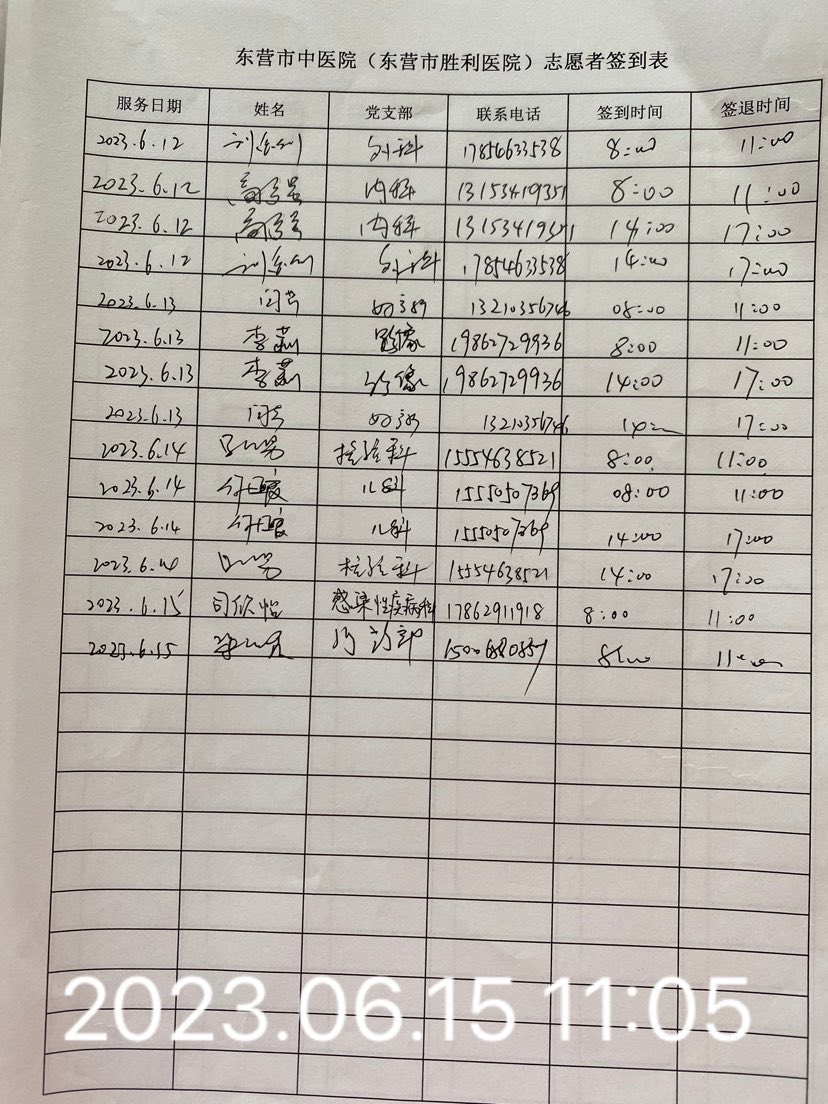 东营市中医院（东营市胜利医院）志愿者签到表
服务日期 姓名 党支部 联系电话 签到时间 签退时间
2023.6.12 外科 17854633538 8:00 11:00
2023.6.12 内科 13153419351 8:00 11:00
2023.6.12 内科 13153419351 14:00 17:00
2023.6.12 外科 17854633538 14:00 17:00
2023.6.13 13210356746 08:00 11:00
2023.6.13 李燕 影像 19862729936 8:00 11:00
2023.6.13 李燕 影像 19862729936 14:00 17:00
2023.6.13 13210356746 14:00 17:00
2023.6.14 检验科 15554638521 8:00 11:00
2023.6.14 儿科 15550507369 08:00 11:00
2023.6.14 儿科 15550507369 14:00 17:00
2023.6.14 检验科 15554638521 14:00 17:00
2023.6.15 司欣怡 感染性疾病科 17862911918 8:00 11:00
2023.6.15 门诊部 8:00 11:00
2023.06.15 11:05